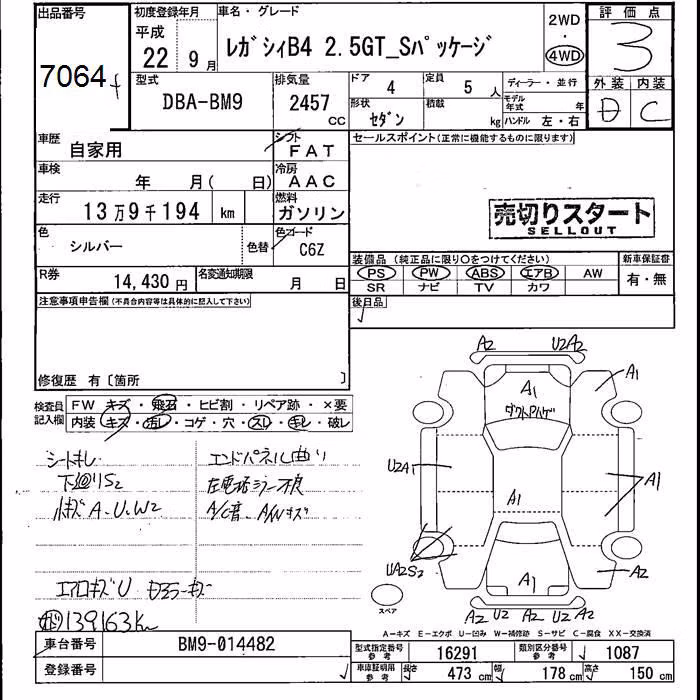 出品番号
7064
初度登録年月
平成
22 9月
車名・グレード
レガシィB4 2.5GT_Sパッケージ
2WD
・
4WD
評価点
3
外装 内装
D C
型式
DBA-BM9
排気量
2457
CC
ドア 4
定員 5 人
形状 セダン
積載 kg
ディーラー・並行
モデル年式 年
ハンドル 左・右
車歴 自家用
シフト FAT
車検 年 月( 日)
冷房 AAC
走行 13万9千194 km
燃料 ガソリン
色 シルバー 色替
色コード C6Z
R券 14,430円
名変通知期限 月 日
セールスポイント(正常に機能するものに限ります)
売切りスタート
SELLOUT
装備品 (純正品に限り○をつけてください)
PS PW ABS エアB AW
SR ナビ TV カワ
新車保証書
有・無
後日品
注意事項申告欄(不具合内容等は具体的に記入して下さい)
修復歴 有〔箇所 〕
検査員記入欄
FW キズ・飛石・ヒビ割・リペア跡・×要
内装 キズ・汚レ・コゲ・穴・スレ・キレ・破レ
シートキレ
下回りS2
小キズ A.U.W2
エンドパネル曲り
左電格ミラー不良
A/C音・A/Wキズ
エアロキズU
139163Km
A2 U2A2
A1
A1
ダクトPハゲ
U2A1
A1
A1
UA2S2
A1
A2
スペア
A2 U2 A2 U2 A2
A-キズ E-エクボ U-凹み W-補修跡 S-サビ C-腐食 XX-交換済
車台番号 BM9-014482
登録番号
型式指定番号 参考 16291
類別区分番号 参考 1087
車庫証明用 参考 長さ 473 cm 幅 178 cm 高さ 150 cm